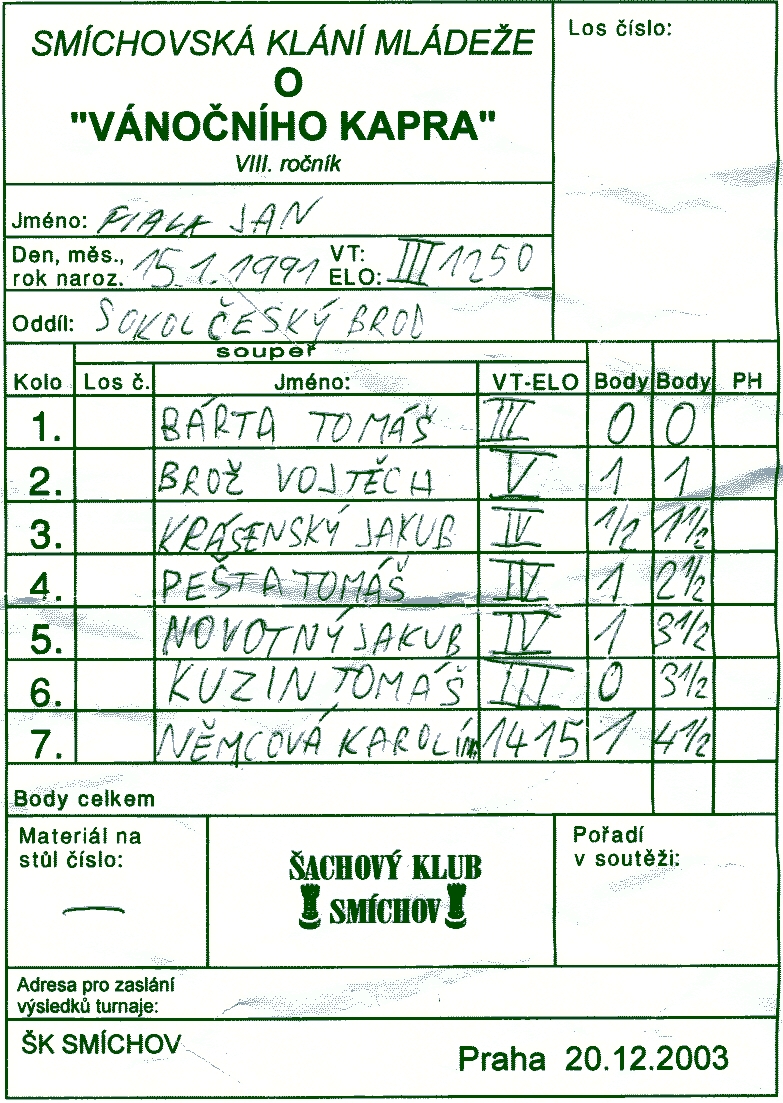 SMÍCHOVSKÁ KLÁNÍ MLÁDEŽE
O
"VÁNOČNÍHO KAPRA"
VIII. ročník
Los číslo:
Jméno: FIALA JAN
Den, měs., rok naroz. 15.1.1991 VT: ELO: III 1250
Oddíl: SOKOL ČESKÝ BROD
soupeř
Kolo Los č. Jméno: VT-ELO Body Body PH
1. BÁRTA TOMÁŠ III 0 0
2. BROŽ VOJTĚCH V 1 1
3. KRÁSENSKÝ JAKUB IV 1/2 1 1/2
4. PEŠTA TOMÁŠ IV 1 2 1/2
5. NOVOTNÝ JAKUB IV 1 3 1/2
6. KUZIN TOMÁŠ III 0 3 1/2
7. NĚMCOVÁ KAROLÍNA 1415 1 4 1/2
Body celkem
Materiál na
stůl číslo:
—
ŠACHOVÝ KLUB
SMÍCHOV
Pořadí
v soutěži:
Adresa pro zaslání
výsledků turnaje:
ŠK SMÍCHOV
Praha 20.12.2003